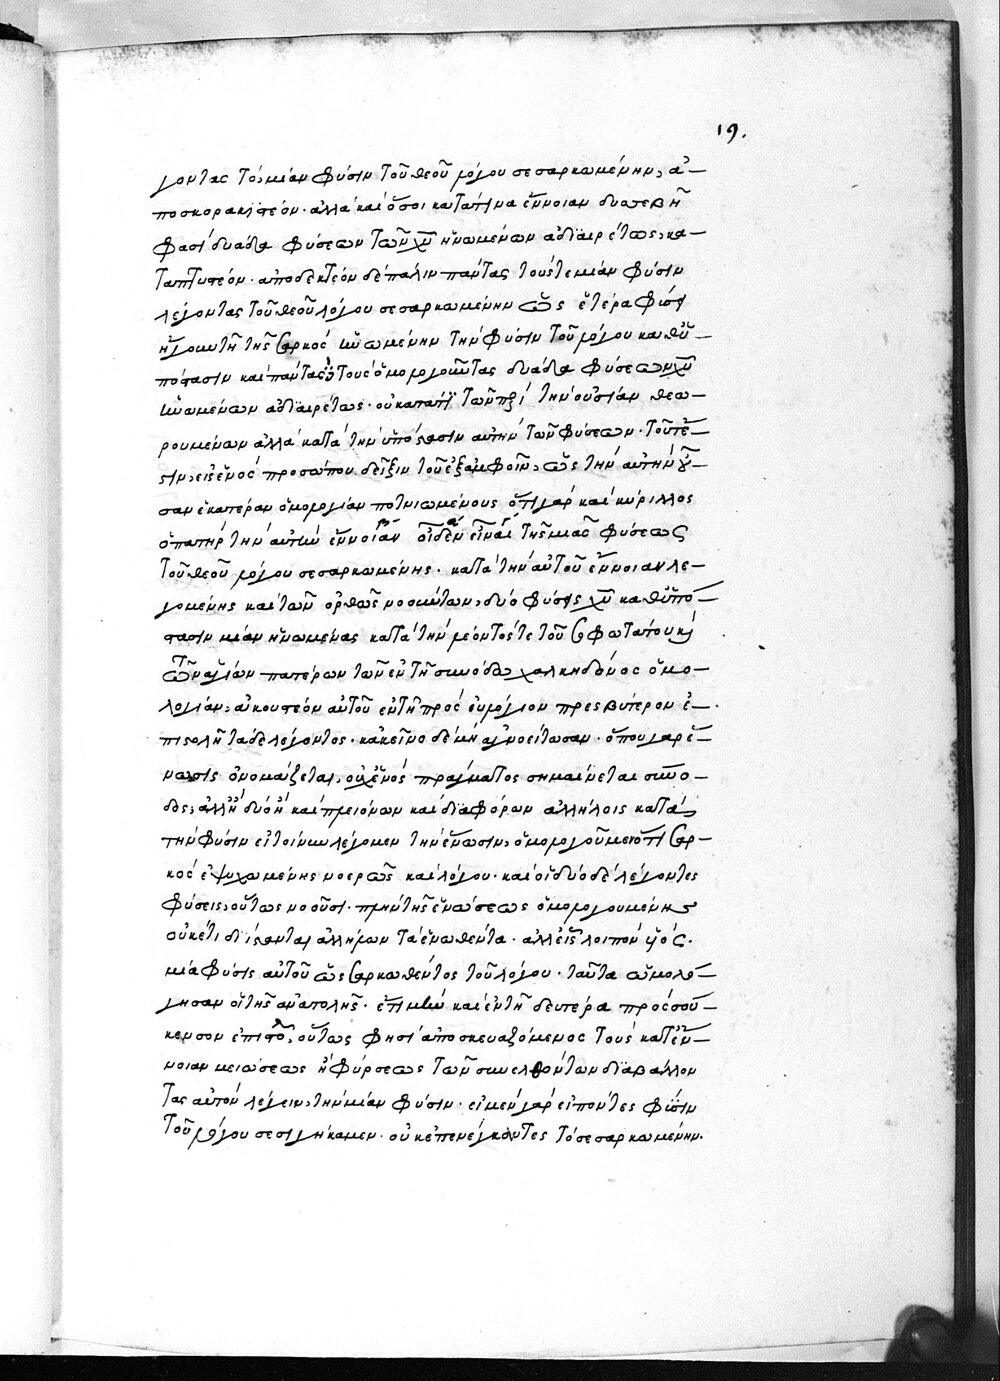 19.
γοντας τὸ μίαν φύσιν τοῦ θεοῦ λόγου σεσαρκωμένην, ἀ-
ποσκορακιστέον. ἀλλὰ καὶ ὅσοι κατά τινα ἔννοιαν δυσσεβῆ
φασὶ δυάδα φύσεων τῶν χ͞υ ἡνωμένων ἀδιαιρέτως, κα-
ταπτυστέον. ἀποδεκτέον δὲ πάλιν πάντας τούς τε μίαν φύσιν
λέγοντας τοῦ θεοῦ λόγου σεσαρκωμένην ὡς ἑτέρα φύσει
ἤγουν τῇ τῆς σαρκὸς ἡνωμένην τὴν φύσιν τοῦ λόγου καθ' ὑ-
πόστασιν καὶ πάντας τοὺς ὁμολογοῦντας δυάδα φύσεων χ͞υ
ἡνωμένων ἀδιαιρέτως. οὐκ ἀπάτῃ τῶν περὶ τὴν οὐσίαν θεω-
ρουμένων ἀλλὰ κατὰ τὴν ὑπόστασιν αὐτὴν τῶν φύσεων. τουτέ-
στιν, εἰς ἑνὸς προσώπου δεῖξιν τοῦ ἐξ ἀμφοῖν, ὡς τὴν αὐτὴν οὖ-
σαν ἑκατέραν ὁμολογίαν ποτνιωμένους ὅτι γὰρ καὶ κύριλλος
ὁ πατὴρ τὴν αὐτὴν ἔννοιαν οἶδεν εἶναι τῆς μιᾶς φύσεως
τοῦ θεοῦ λόγου σεσαρκωμένης. κατὰ τὴν αὐτοῦ ἔννοιαν λε-
γομένης καὶ τῶν ὀρθῶς νοούντων, δύο φύσεις χ͞υ καθ' ὑπό-
στασιν μίαν ἡνωμένας κατὰ τὴν λέοντός τε τοῦ σοφωτάτου καὶ
τῶν ἁγίων πατέρων τῶν ἐν τῇ συνόδῳ χαλκηδόνος ὁμο-
λογίαν, ἀκουστέον αὐτοῦ ἐν τῇ πρὸς εὐλόγιον πρεσβύτερον ἐ-
πιστολῇ τάδε λέγοντος. κἀκεῖνο δὲ μὴ ἀγνοείτωσαν. ὅπου γὰρ ἕ-
νωσις ὀνομάζεται, οὐχ ἑνὸς πράγματος σημαίνεται σύνο-
δος, ἀλλ' ἢ δύο ἢ καὶ πλειόνων καὶ διαφόρων ἀλλήλοις κατὰ
τὴν φύσιν εἰ τοίνυν λέγομεν τὴν ἕνωσιν, ὁμολογοῦμεν ὅτι σαρ-
κὸς ἐψυχωμένης νοερῶς καὶ λόγου. καὶ οἱ δύο δὲ λέγοντες
φύσεις, οὕτως νοοῦσι. πλὴν τῆς ἑνώσεως ὁμολογουμένης
οὐκέτι διίστανται ἀλλήλων τὰ ἑνωθέντα. ἀλλ' εἷς λοιπὸν υἱός.
μία φύσις αὐτοῦ ὡς σαρκωθέντος τοῦ λόγου. ταῦτα ὡμολό-
γησαν οἱ τῆς ἀνατολῆς. ἔτι μὴν καὶ ἐν τῇ δευτέρᾳ πρὸς σού-
κενσον ἐπιστο, οὕτως φησὶ ἀποσκευαζόμενος τοὺς κατ' ἔν-
νοιαν μειώσεως ἢ φύρσεως τῶν συνελθόντων διαβάλλον
τας αὐτὸν λέγειν, τὴν μίαν φύσιν. εἰ μὲν γὰρ εἰπόντες φύσιν
τοῦ λόγου σεσιγήκαμεν. οὐκ ἐπενεγκόντες τὸ σεσαρκωμένην.